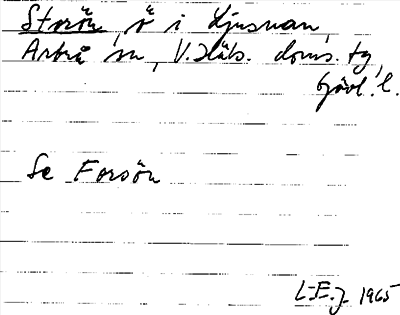 Storön, ö i Ljusnan,
Arbrå sn, V. Häls. doms. tg,
Gävl. l.
Se Forsön
L-E.J. 1965